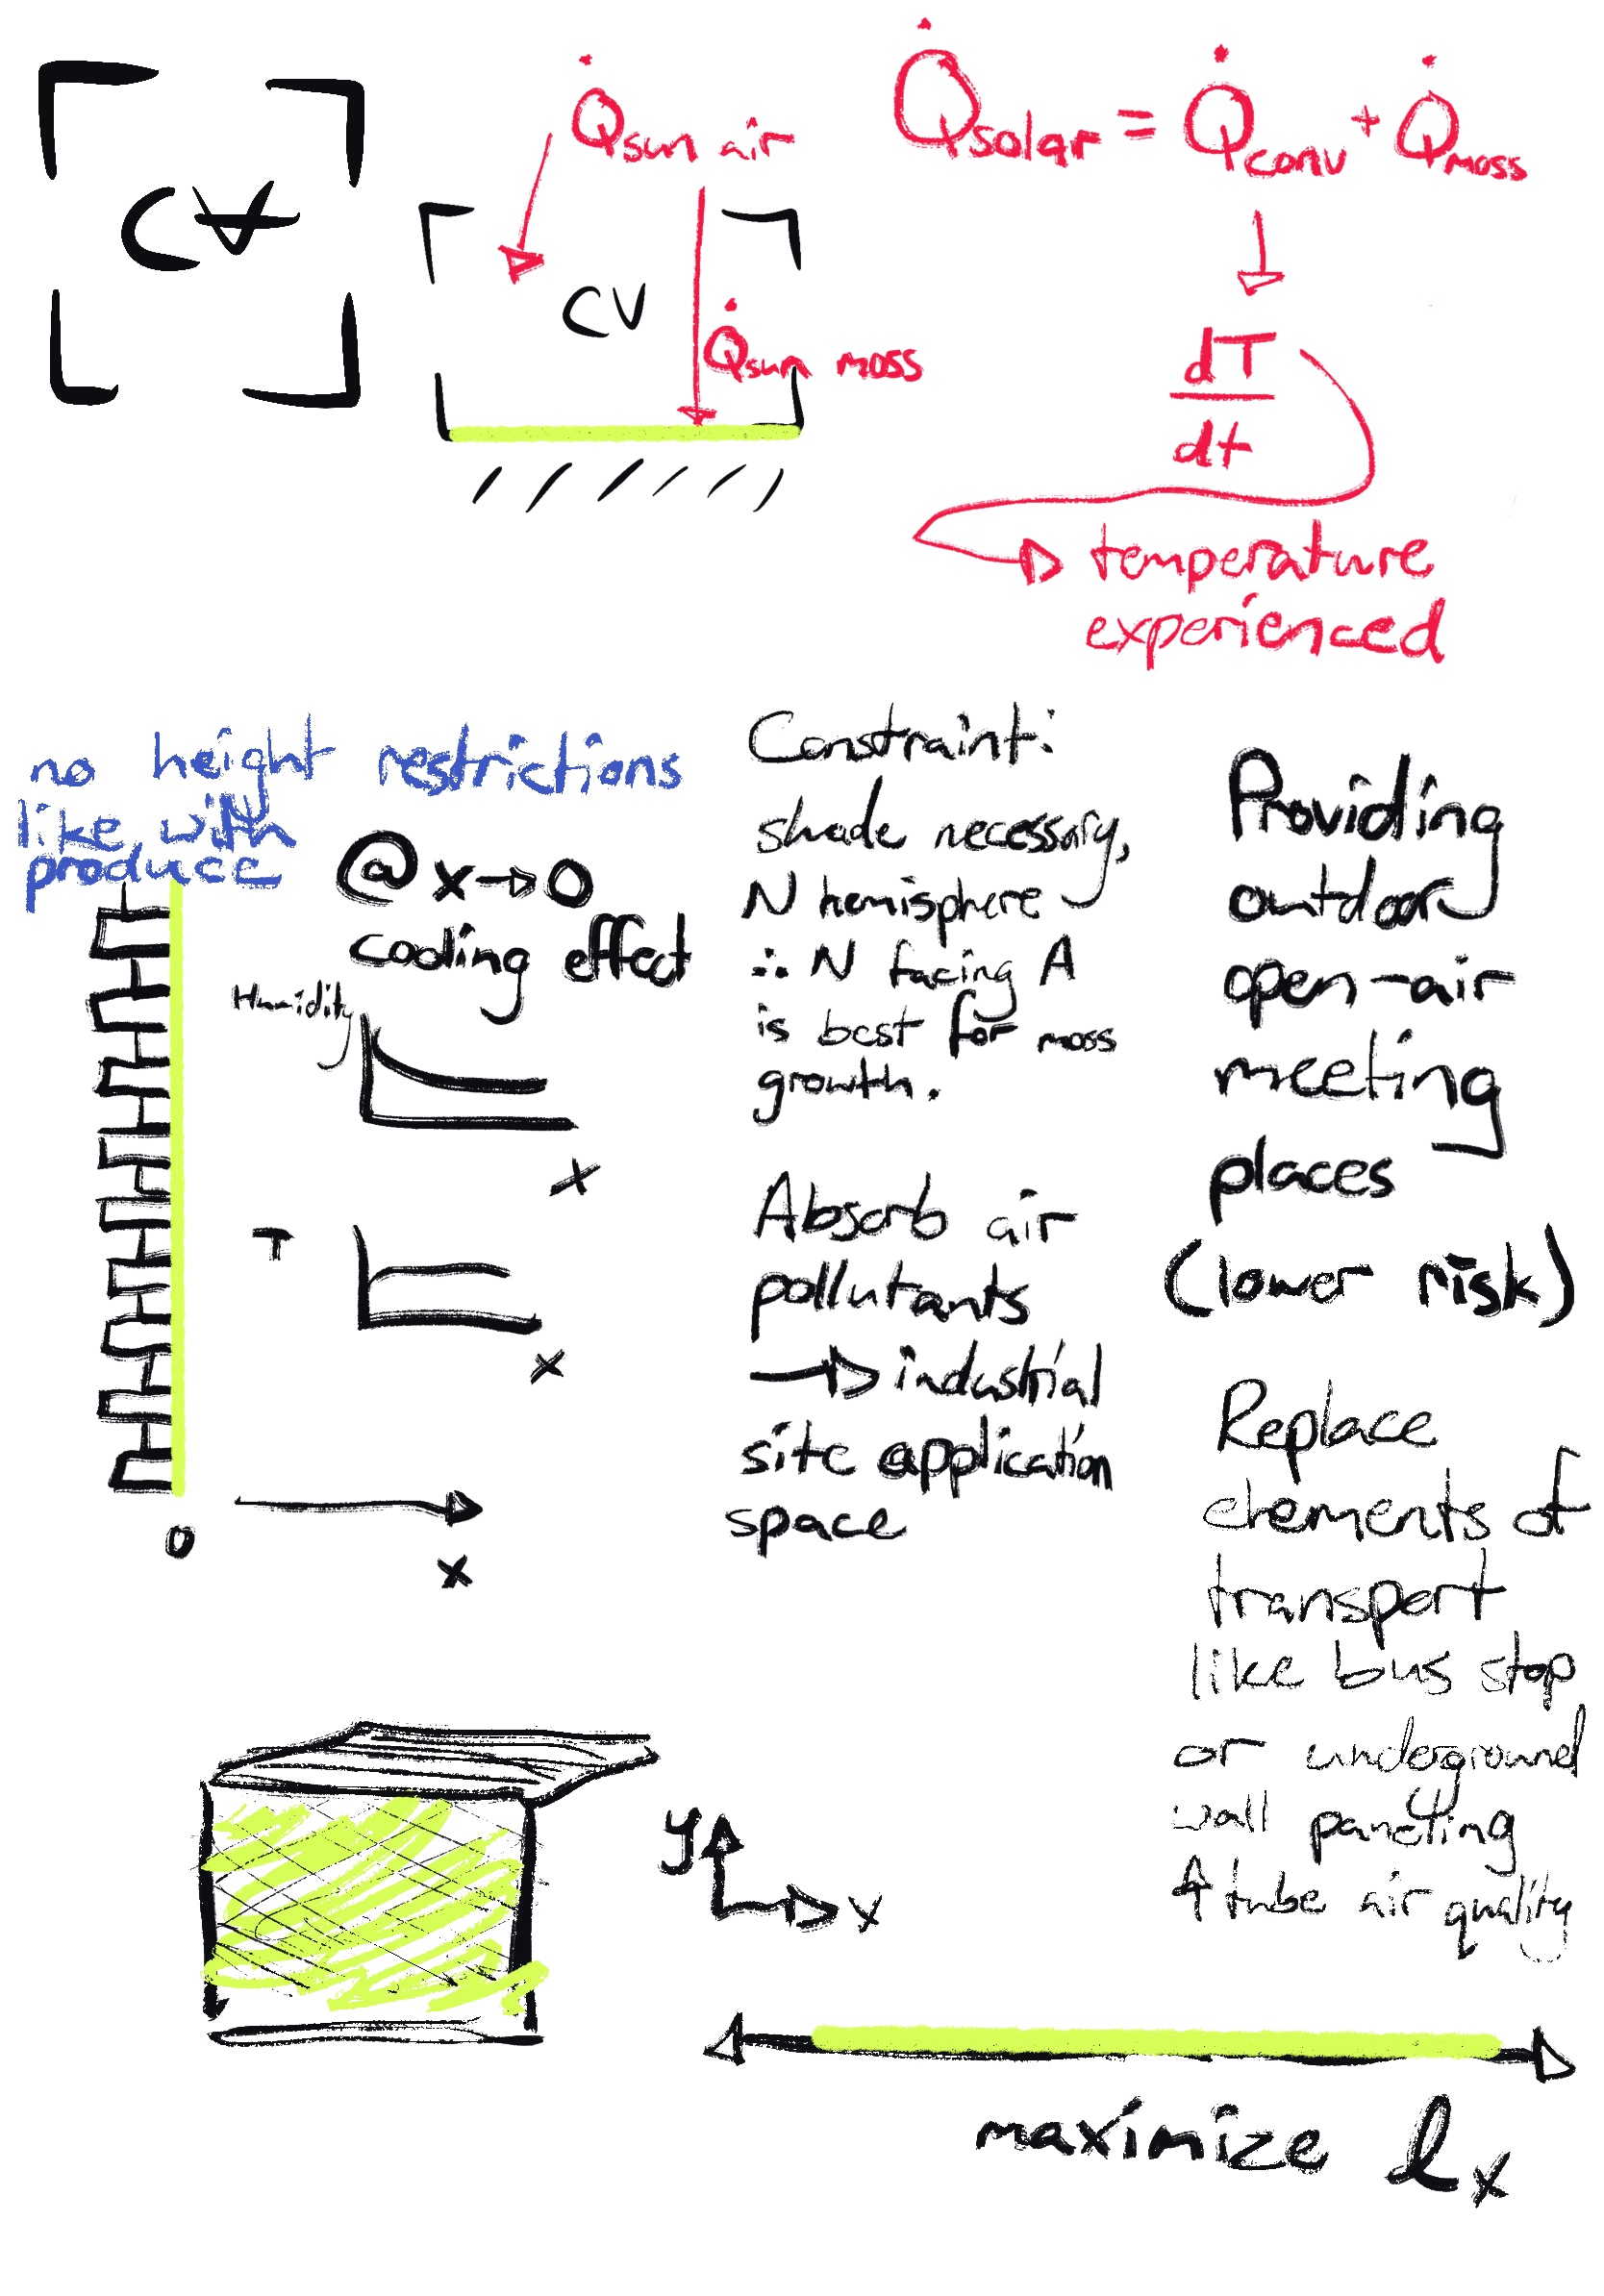 CV
Q̇sun air
Q̇solar = Q̇conv + Q̇moss
CV
Q̇sun moss
dT
dt
temperature
experienced
no height restrictions
like with
produce
@ x→0
cooling effect
Humidity
x
T
x
0
x
Constraint:
shade necessary,
N hemisphere
∴ N facing A
is best for moss
growth.
Absorb air
pollutants
→ industrial
site application
space
Providing
outdoor
open-air
meeting
places
(lower risk)
Replace
elements of
transport
like bus stop
or underground
wall paneling
↑ tube air quality
y
x
maximize lx